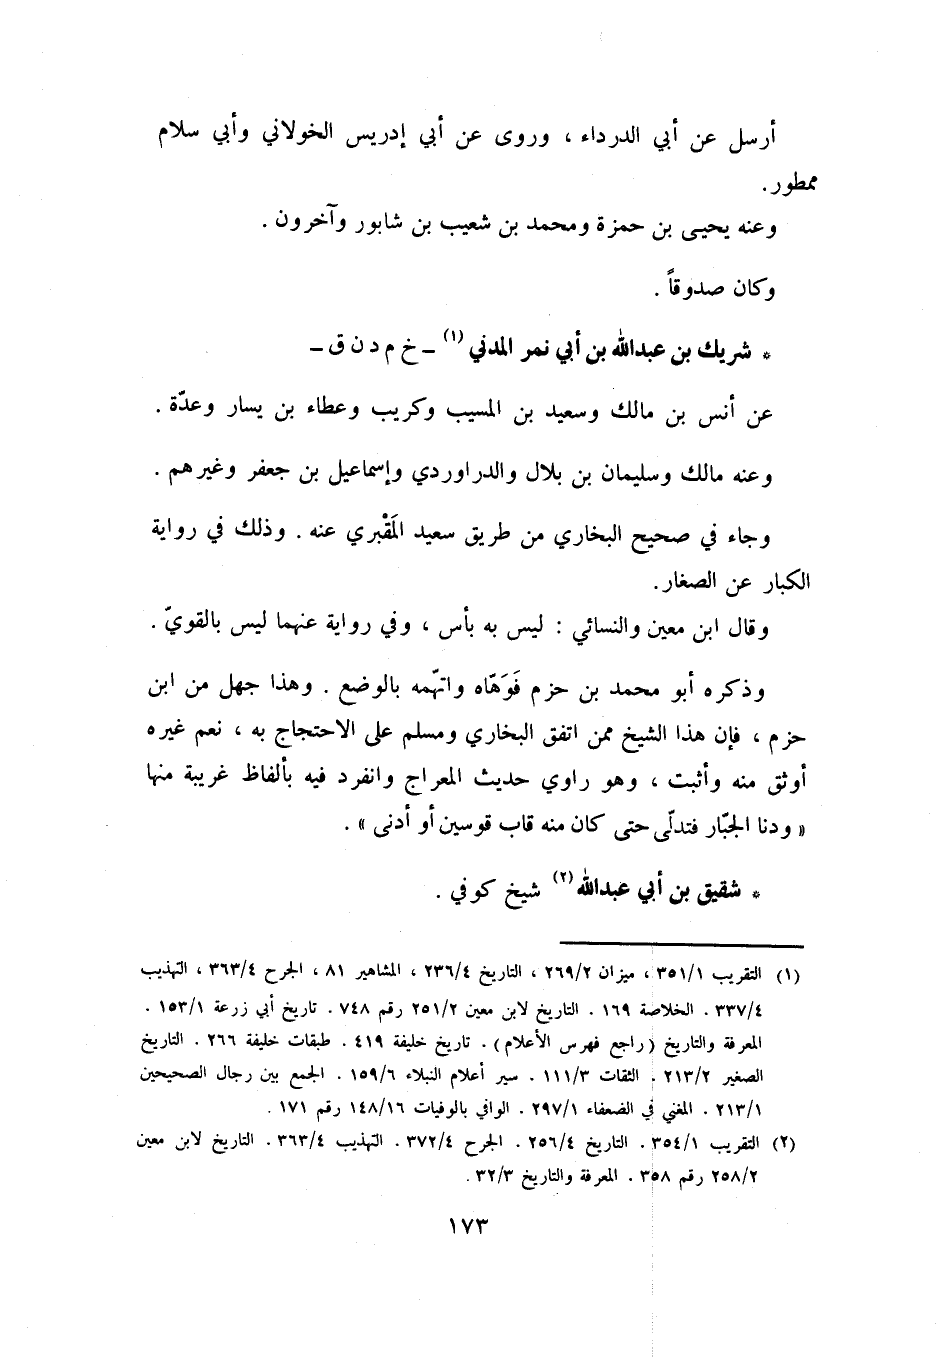 أرسل عن أبي الدرداء ، وروى عن أبي إدريس الخولاني وأبي سلام
ممطور.
وعنه يحيى بن حمزة ومحمد بن شعيب بن شابور وآخرون .
وكان صدوقاً .
* شريك بن عبدالله بن أبي نمر المدني (١) ـ خ م د ن ق ـ
عن أنس بن مالك وسعيد بن المسيب وكريب وعطاء بن يسار وعدّة .
وعنه مالك وسليمان بن بلال والدراوردي وإسماعيل بن جعفر وغيرهم .
وجاء في صحيح البخاري من طريق سعيد المَقْبري عنه . وذلك في رواية
الكبار عن الصغار.
وقال ابن معين والنسائي : ليس به بأس ، وفي رواية عنهما ليس بالقويّ .
وذكره أبو محمد بن حزم فَوَهّاه واتهّمه بالوضع . وهذا جهل من ابن
حزم ، فإن هذا الشيخ ممن اتفق البخاري ومسلم على الاحتجاج به ، نعم غيره
أوثق منه وأثبت ، وهو راوي حديث المعراج وانفرد فيه بألفاظ غريبة منها
« ودنا الجبّار فتدلّى حتى كان منه قاب قوسين أو أدنى » .
* شقيق بن أبي عبدالله (٢) شيخ كوفي .
(١) التقريب ٣٥١/١ ، ميزان ٢٦٩/٢ ، التاريخ ٢٣٦/٤ ، المشاهير ٨١ ، الجرح ٣٦٣/٤ ، التهذيب
٣٣٧/٤ . الخلاصة ١٦٩ . التاريخ لابن معين ٢٥١/٢ رقم ٧٤٨ . تاريخ أبي زرعة ١٥٣/١ .
المعرفة والتاريخ (راجع فهرس الأعلام) . تاريخ خليفة ٤١٩ . طبقات خليفة ٢٦٦ . التاريخ
الصغير ٢١٣/٢ . الثقات ١١١/٣ . سير أعلام النبلاء ١٥٩/٦ . الجمع بين رجال الصحيحين
٢١٣/١ . المغني في الضعفاء ٢٩٧/١ . الوافي بالوفيات ١٤٨/١٦ رقم ١٧١ .
(٢) التقريب ٣٥٤/١ . التاريخ ٢٥٦/٤ . الجرح ٣٧٢/٤ . التهذيب ٣٦٣/٤ . التاريخ لابن معين
٢٥٨/٢ رقم ٣٥٨ . المعرفة والتاريخ ٣٢/٣ .
١٧٣